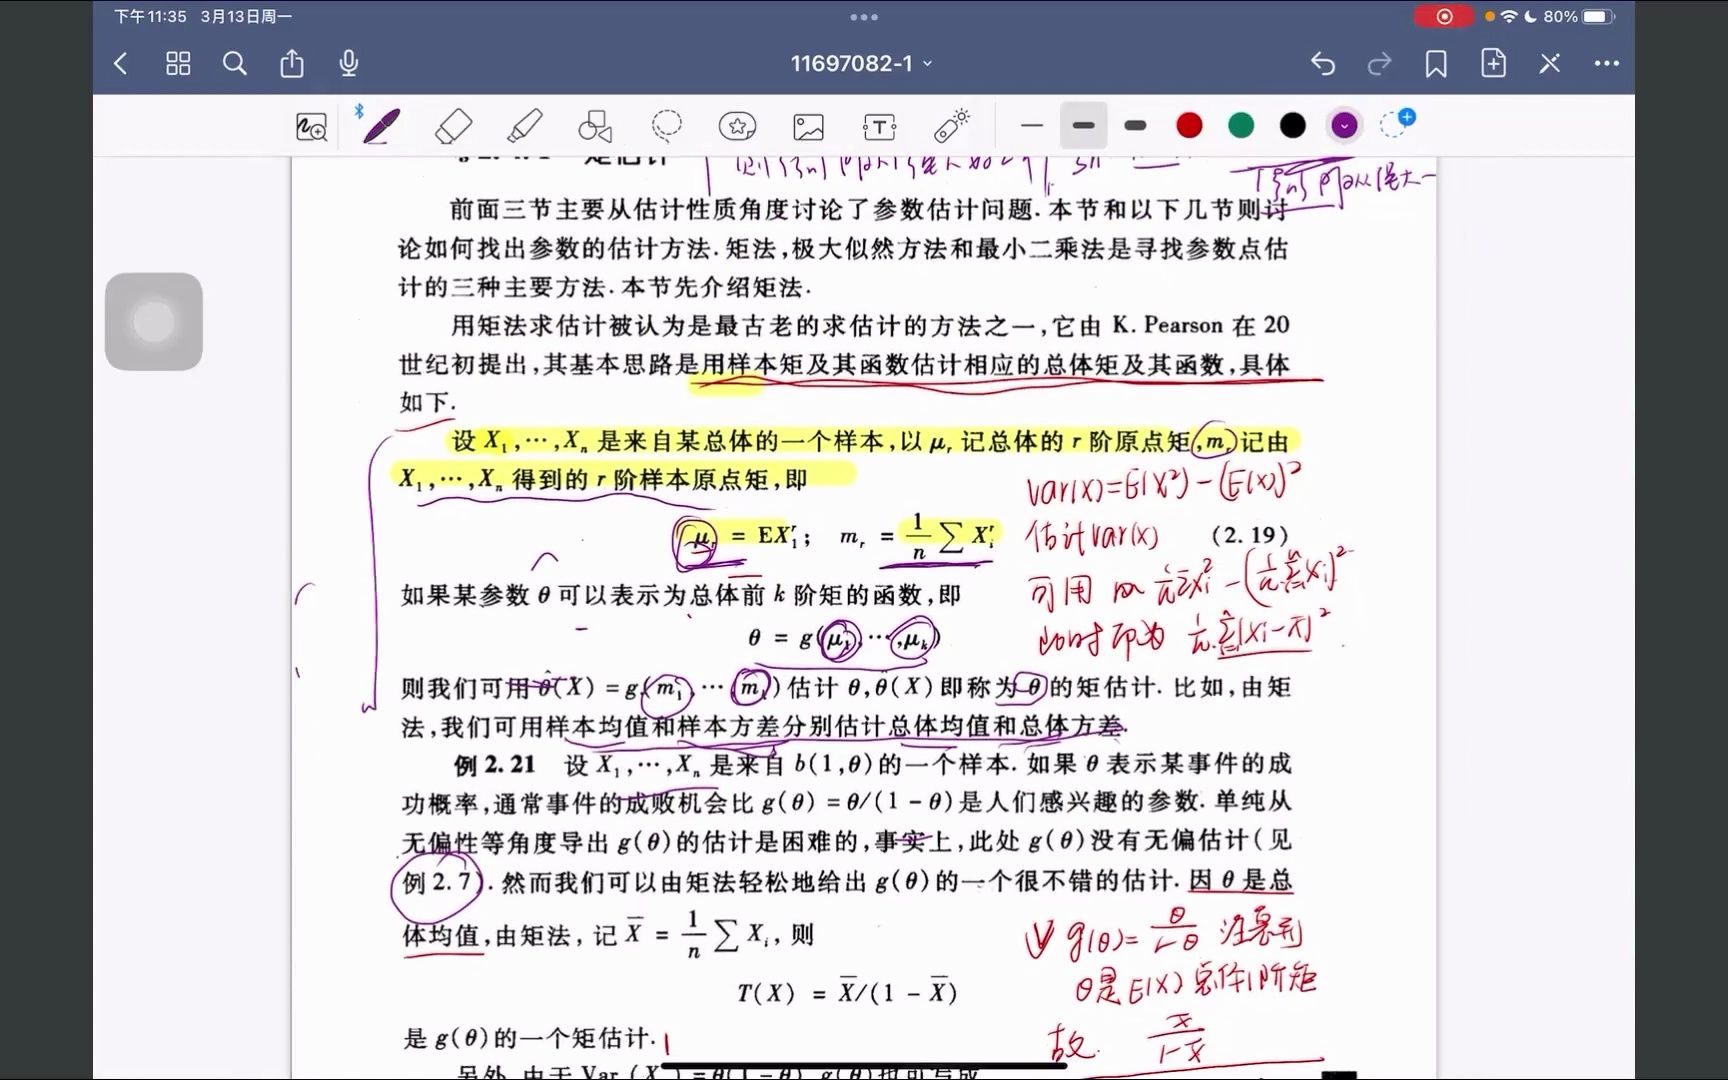 下午11:35 3月13日周一
80%
11697082-1
矩估计
前面三节主要从估计性质角度讨论了参数估计问题.本节和以下几节则讨
论如何找出参数的估计方法.矩法,极大似然方法和最小二乘法是寻找参数点估
计的三种主要方法.本节先介绍矩法.
用矩法求估计被认为是最古老的求估计的方法之一,它由 K. Pearson 在 20
世纪初提出,其基本思路是用样本矩及其函数估计相应的总体矩及其函数,具体
如下.
设 X₁,⋯,Xₙ 是来自某总体的一个样本,以 μᵣ 记总体的 r 阶原点矩,mᵣ 记由
X₁,⋯,Xₙ 得到的 r 阶样本原点矩,即
Var(X)=E(X²)-(E(X))²
μᵣ = EX₁ʳ; mᵣ = 1/n ∑ Xᵢʳ (2.19)
估计Var(X)
如果某参数 θ 可以表示为总体前 k 阶矩的函数,即
可用
θ = g(μ₁,⋯,μₖ)
此时即为 1/n ∑(Xᵢ-X̄)²
则我们可用 θ̂(X) = g(m₁,⋯,mₖ) 估计 θ,θ̂(X) 即称为 θ 的矩估计.比如,由矩
法,我们可用样本均值和样本方差分别估计总体均值和总体方差.
例 2.21 设 X₁,⋯,Xₙ 是来自 b(1,θ) 的一个样本.如果 θ 表示某事件的成
功概率,通常事件的成败机会比 g(θ) = θ/(1 - θ) 是人们感兴趣的参数.单纯从
无偏性等角度导出 g(θ) 的估计是困难的,事实上,此处 g(θ) 没有无偏估计(见
例 2.7).然而我们可以由矩法轻松地给出 g(θ) 的一个很不错的估计.因 θ 是总
体均值,由矩法,记 X̄ = 1/n ∑ Xᵢ,则
g(θ)=θ/(1-θ) 注意到
T(X) = X̄/(1 - X̄)
θ是E(X) 总体1阶矩
是 g(θ) 的一个矩估计.
故 x̄/(1-x̄)
另外,由于 Var (X) = θ(1 - θ), g(θ) 也可写成